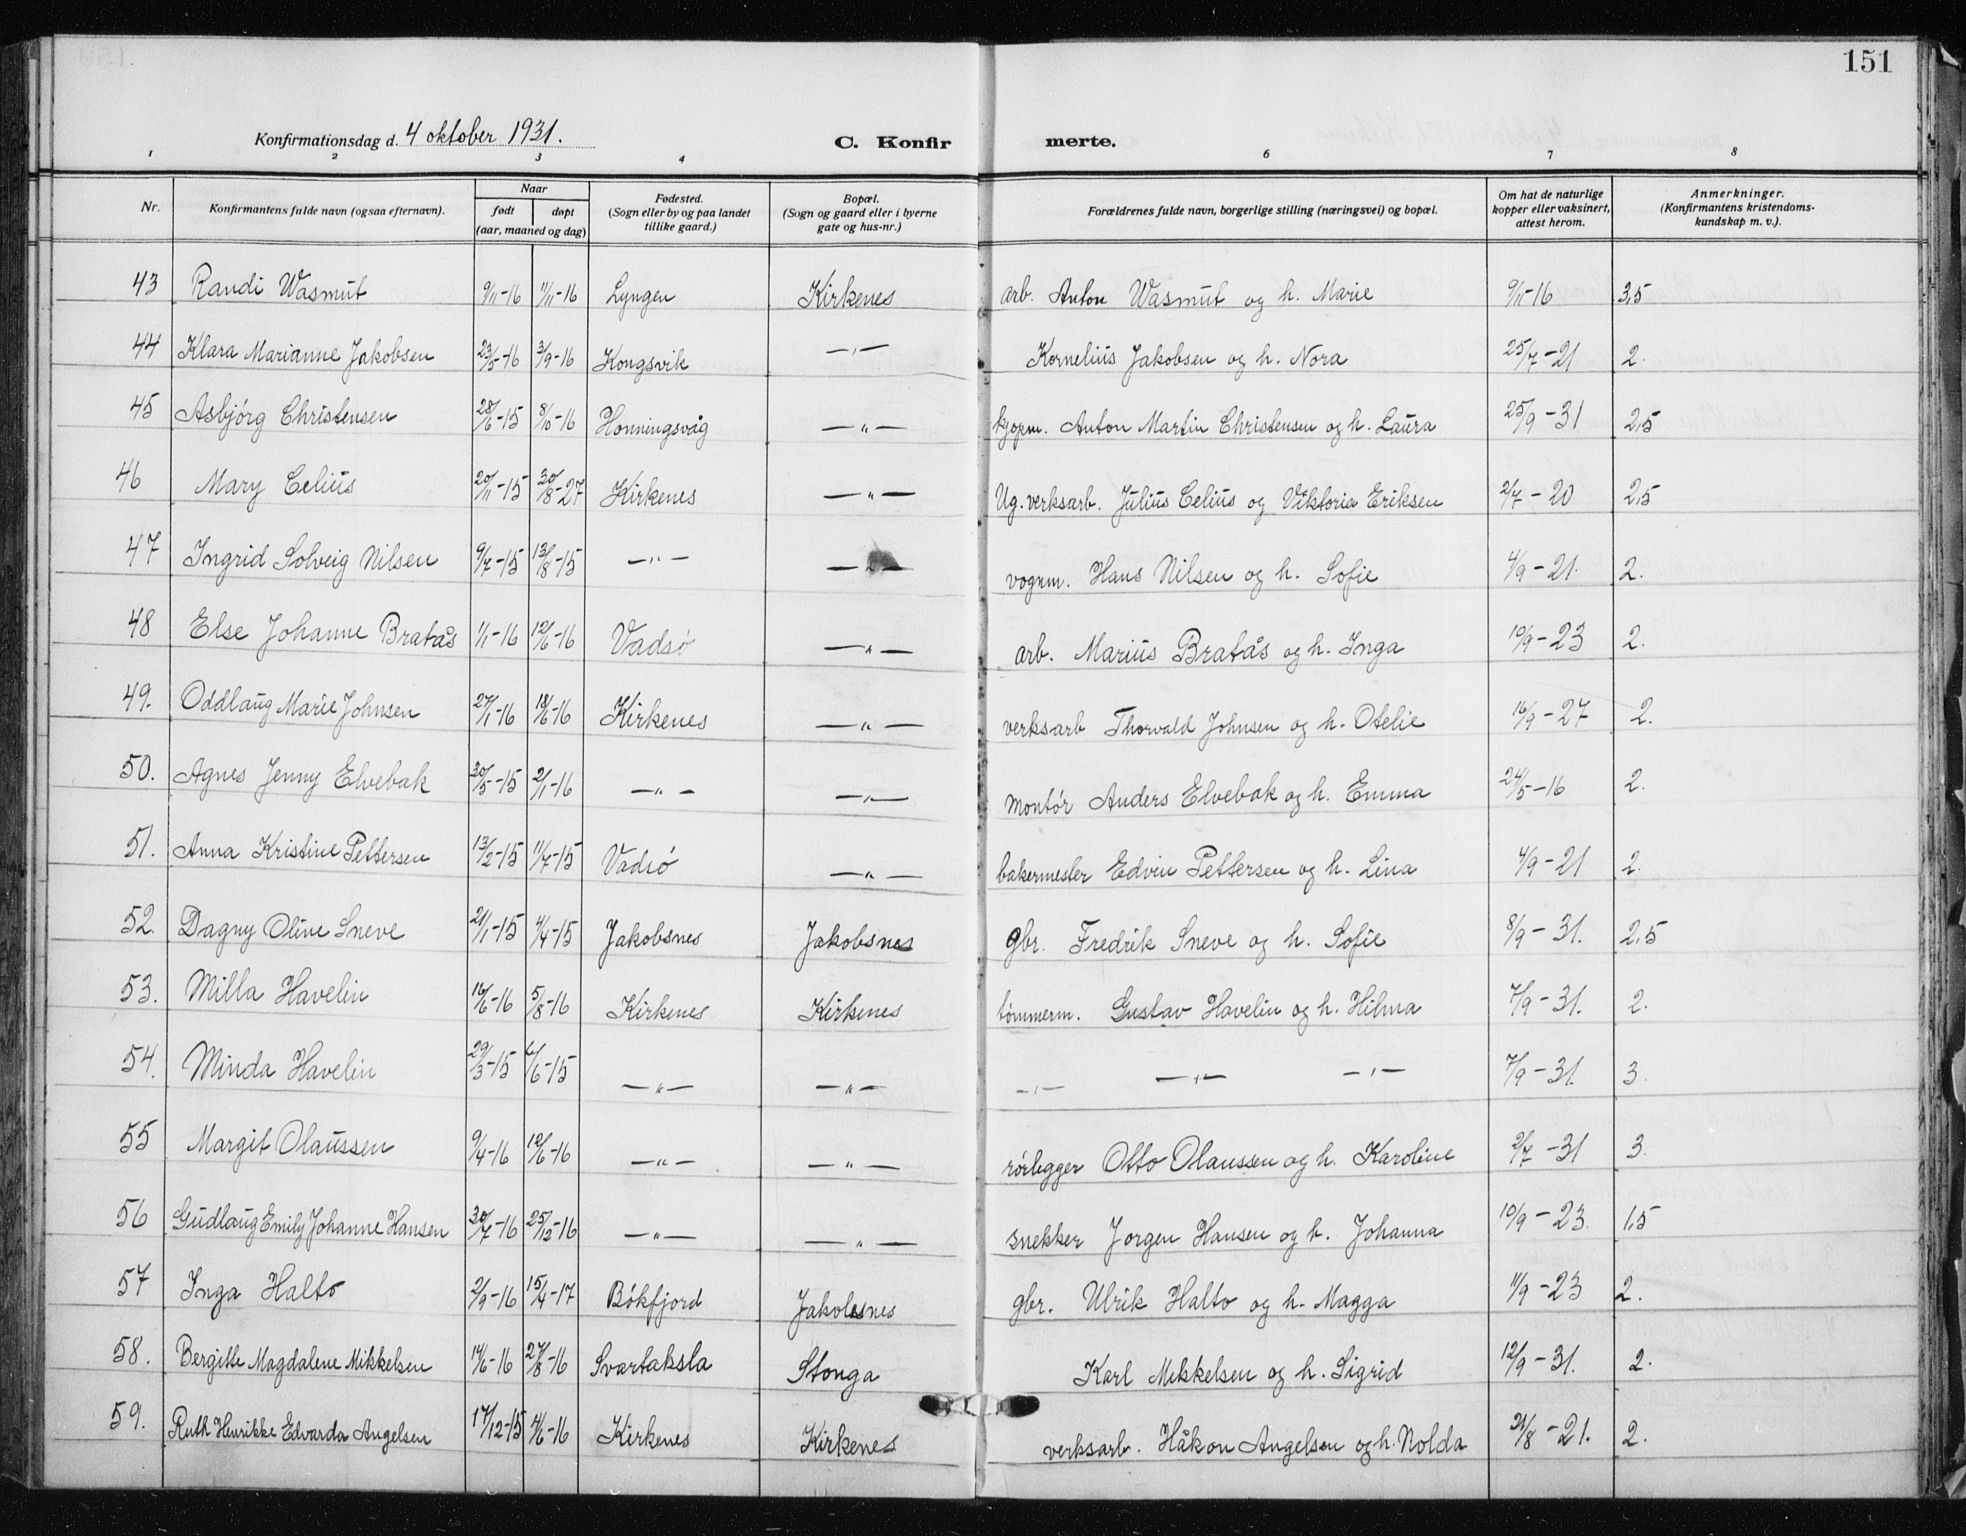 151
Konfirmationsdag d. 4 oktober 1931. C. Konfirmerte.
1 2 3 4 6 7 8
Nr. Konfirmantens fulde navn (ogsaa efternavn). Naar født døpt (aar, maaned og dag) Fødested. (Sogn eller by og paa landet tillike gaard.) Bopæl. (Sogn og gaard eller i byerne gate og hus-nr.) Forældrenes fulde navn, borgerlige stilling (næringsvei) og bopæl. Om hat de naturlige kopper eller vaksinert, attest herom. Anmerkninger. (Konfirmantens kristendomskundskap m. v.).
43 Randi Wasmut 9/11-16 11/11-16 Lyngen Kirkenes arb. Anton Wasmut og h. Marie 9/11-16 3,5
44 Klara Marianne Jakobsen 23/5-16 3/9-16 Kongsvik —"— Kornelius Jakobsen og h. Nora 25/7-21 2.
45 Asbjórg Christensen 28/6-15 8/10-16 Honningsvåg —"— kjøpm. Anton Martin Christensen og h. Laura 25/9-31 2,5
46 Mary Celius 20/11-15 30/8-27 Kirkenes —"— Ug. verksarb. Julius Celius og Viktoria Eriksen 2/7-20 2,5
47 Ingrid Solveig Nilsen 9/7-15 13/8-15 —"— —"— vognm. Hans Nilsen og h. Sofie 4/9-21. 2.
48 Else Johanne Bratås 1/1-16 12/6-16 Vadsó —"— arb. Marius Bratås og h. Inga 10/9-23 2.
49. Oddlaug Marie Johnsen 27/1-16 18/6-16 Kirkenes —"— verksarb Thorvald Johnsen og h. Otelie 16/9-27 2.
50. Agnes Jenny Elvebak 30/5-15 2/1-16 —"— —"— montór Anders Elvebak og h. Emma 24/5-16 2.
51. Anna Kristine Pettersen 13/2-15 11/7-15 Vadsó —"— bakermester Edvin Pettersen og h. Lina 4/9-21 2.
52. Dagny Oline Sneve 21/1-15 4/4-15 Jakobsnes Jakobsnes gbr. Fredrik Sneve og h. Sofie 8/9-31. 2,5
53. Milla Havelin 16/6-16 5/8-16 Kirkenes Kirkenes tómmerm. Gustav Havelin og h. Hilma 7/9-31. 2.
54. Minda Havelin 29/3-15 6/6-15 —"— —"— —"— —"— —"— 7/9-31. 3.
55 Margit Olaussen 9/4-16 12/6-16 —"— —"— rórlegger Otto Olaussen og h. Karoline 2/7-31 3.
56 Gudlaug Emily Johanne Hansen 30/7-16 25/12-16 —"— —"— snekker Jorgen Hansen og h. Johanna 10/9-23. 1,5
57 Inga Halto 2/9-16 15/4-17 Bókfjord Jakobsnes gbr. Ulrik Halto og h. Magga 11/9-23 2.
58. Bergitte Magdalene Mikkelsen 14/6-16 27/8-16 Svartaksla Stonga Karl Mikkelsen og h. Sigrid 12/9-31. 2.
59. Ruth Henrikke Edvarda Angelsen 17/12-15 4/6-16 Kirkenes Kirkenes verksarb. Håkon Angelsen og h. Nolda 21/8-21. 2.